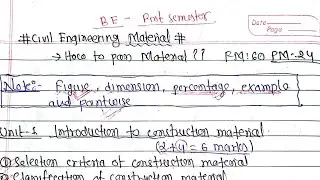 BE - First semester
Date
Page
# Civil Engineering Material #
→ How to pass Material ?? FM:60 PM-24
Note:- Figure, dimension, percentage, example and pointwise
Unit-1 Introduction to construction material
(2+4 = 6 marks)
① Selection criteria of construction material
② Classification of construction material